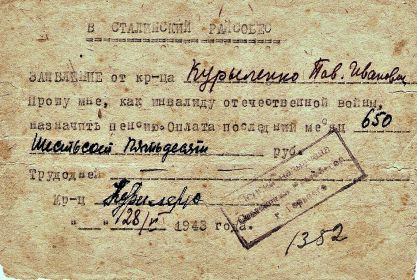 В СТАЛИНСКИЙ РАЙСОБЕС
ЗАЯВЛЕНИЕ от кр-ца Курыленко Пав. Иванович
Прошу мне, как инвалиду отечественной войны,
назначить пенсию. Оплата последний месяц 650
Шестьсот Пятьдесят руб.
Трудодней
Кр-ц Курыленко
"28/VI" 1943 года.
1352